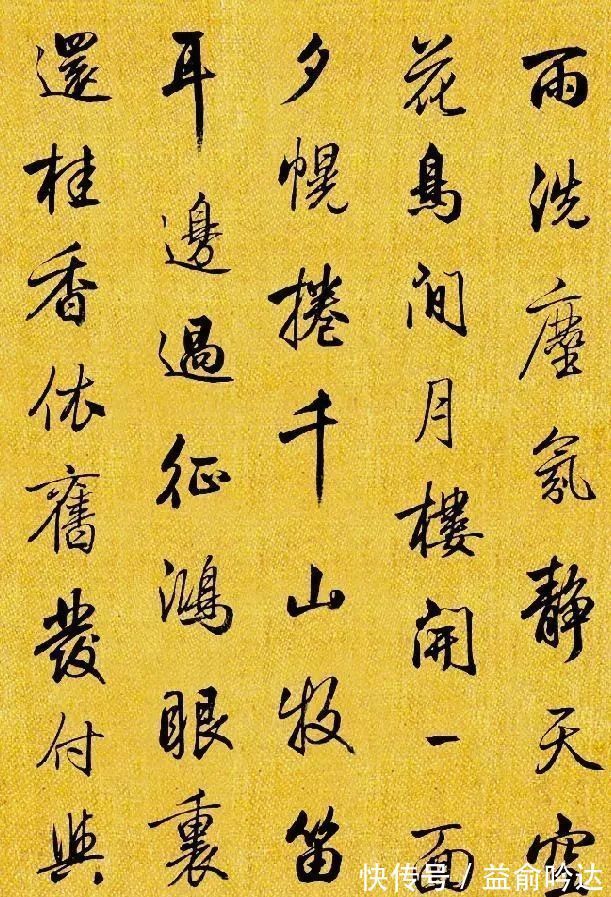 雨洗塵氛靜天空
花鳥間月樓開一面
夕幌捲千山牧笛
耳邊過征鴻眼裏
還桂香依舊發付與
快传号 / 益俞吟达